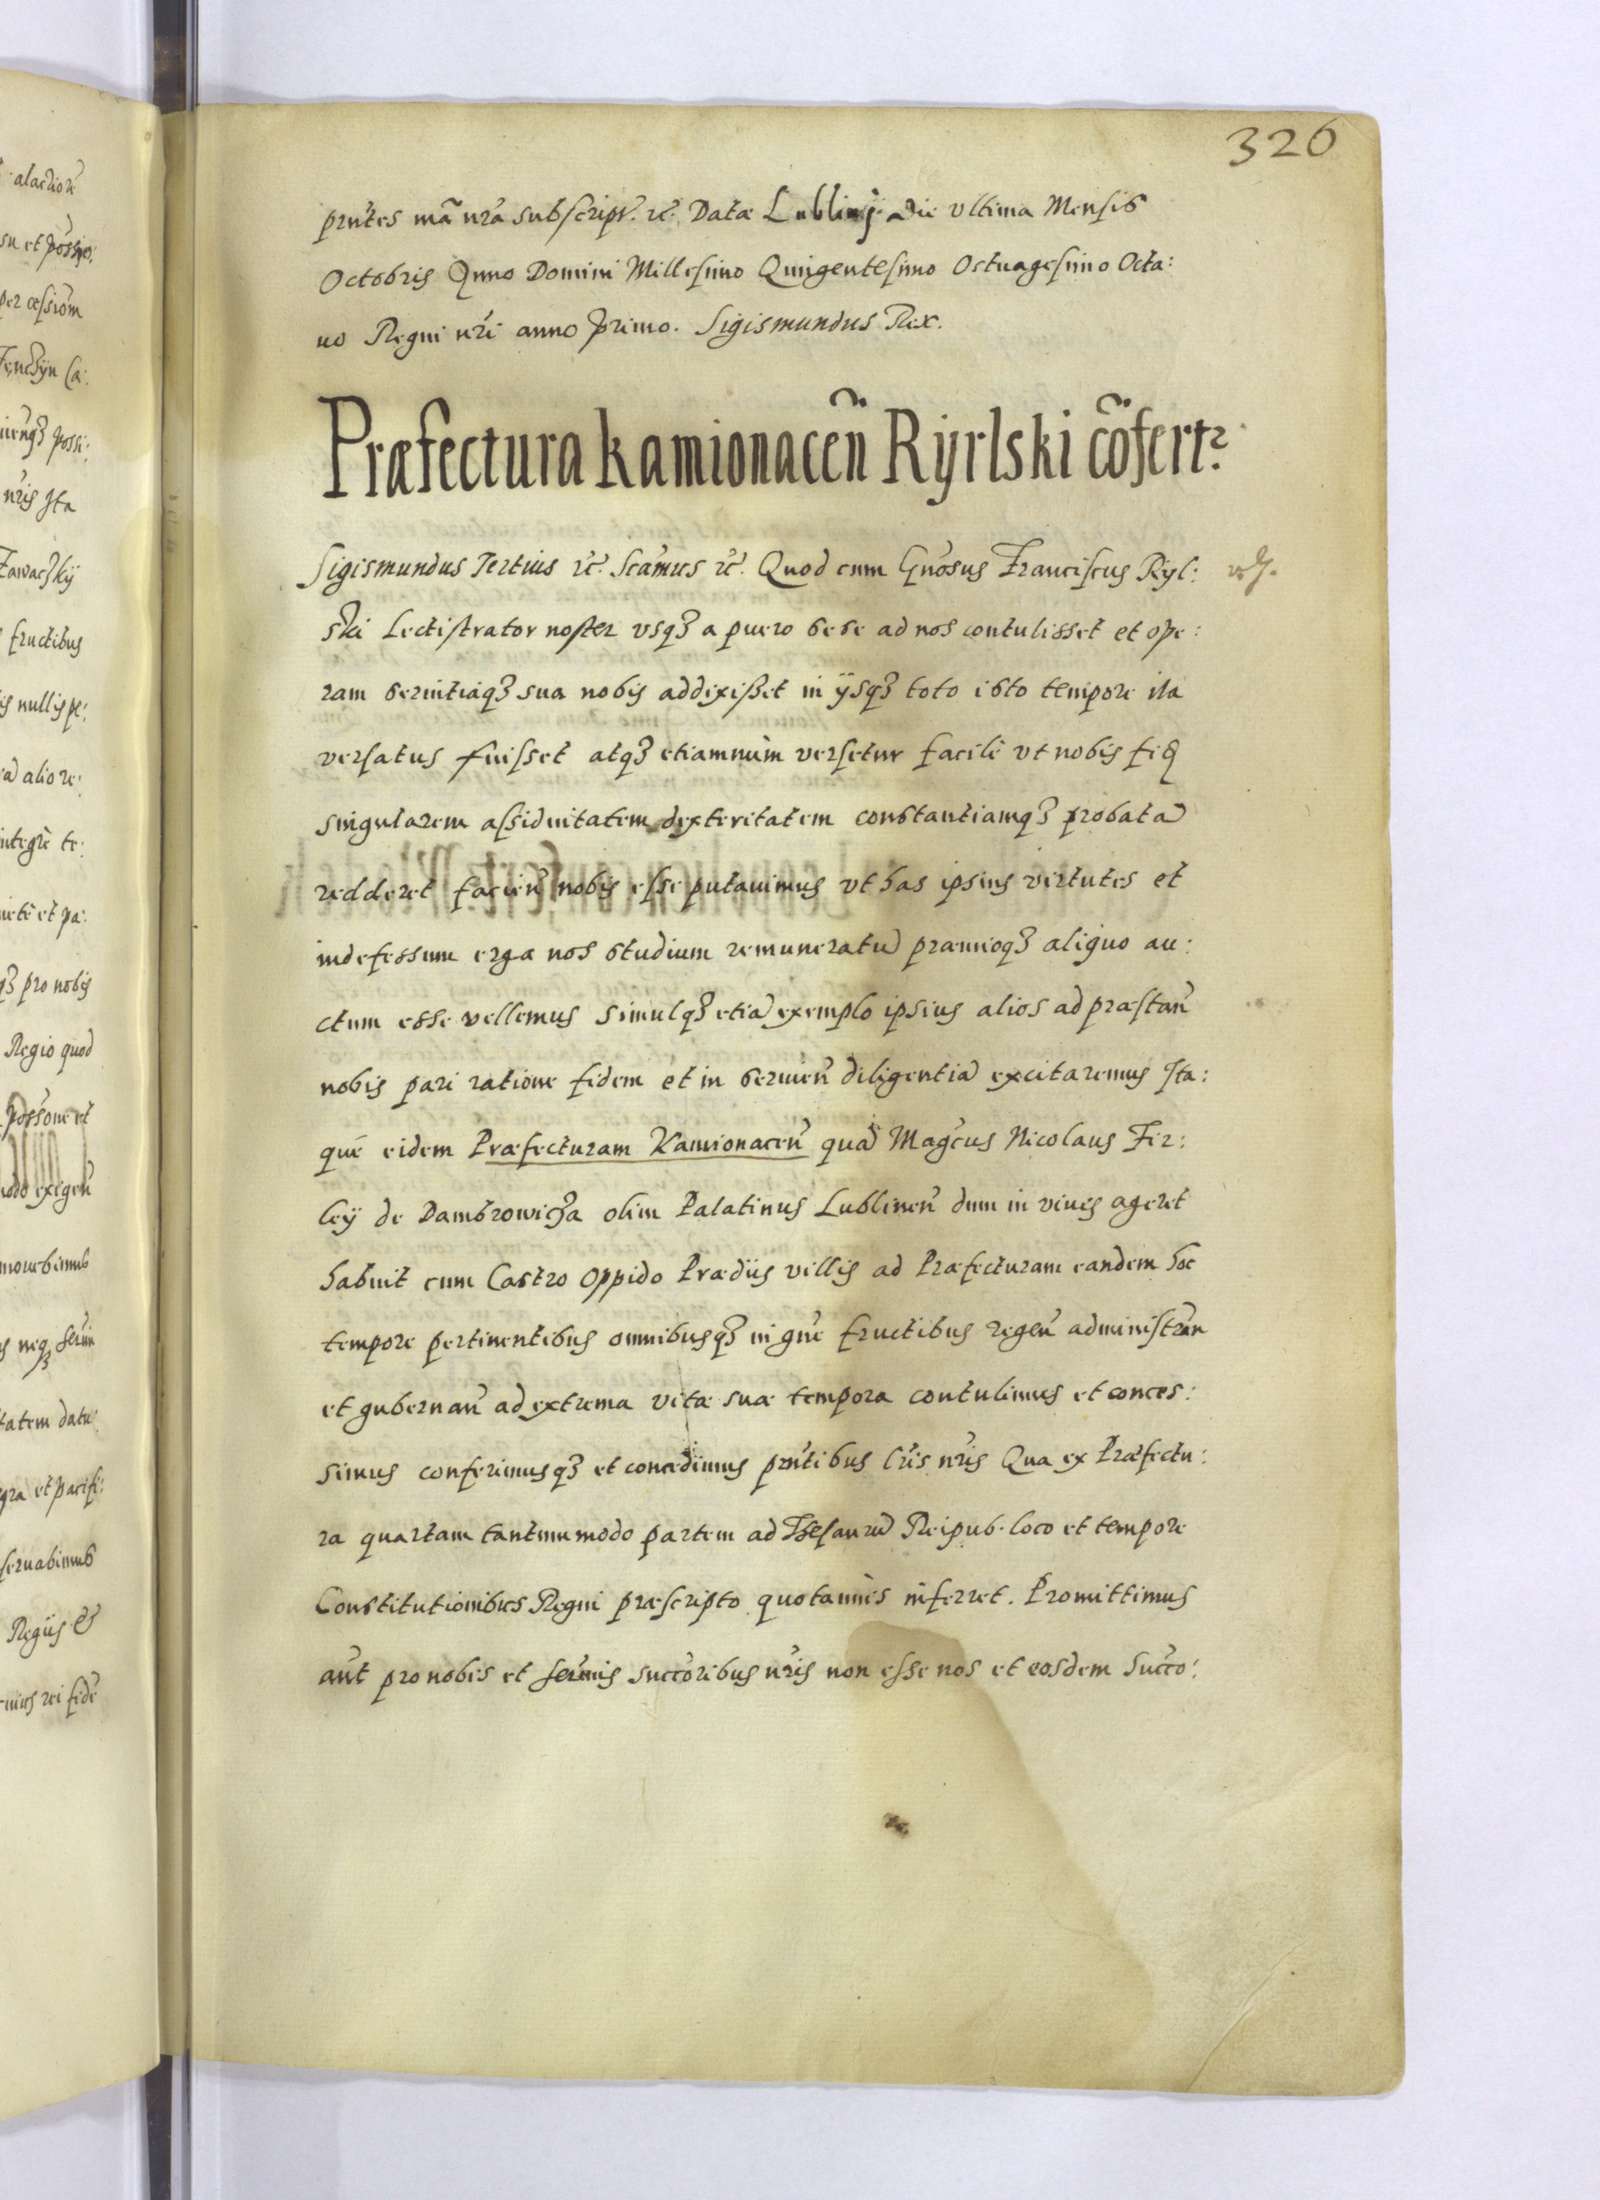 326
prñtes mã nrã subscript. &c. Datæ Lublinj die vltima Mensis
Octobris Anno Domini Millesimo Quingentesimo Octuagesimo Octa:
uo Regni nri anno primo. Sigismundus Rex.
Præfectura Kamionaceñ Rÿrlski cõfertr.
Sigismundus Tertius &c. Scamus &c. Quod cum Gnosus Franciscus Rÿl:
ski Lectistrator noster vsq3 a puero sese ad nos contulisset et ope:
ram seruitiaq3 sua nobis addixisset in ÿsq3 toto isto tempore ita
versatus fuisset atq3 etiamnùm versetur facilè vt nobis
singularem assiduitatem dexteritatem constantiamq3 probatã
redderet facien nobis esse putauimus vt has ipsius virtutes et
indefessum erga nos studium remuneratũ præmioq3 aliquo au:
ctum esse vellemus simulq3 etiã exemplo ipsius alios ad præstan
nobis pari ratione fidem et in seruien diligentiã excitaremus Ita:
què eidem Præfecturam Kamionacen quã Magcus Nicolaus Fir:
leÿ de Dambrowicza olim Palatinus Lublinen dum in viuis ageret
habuit cum Castro Oppido Prædiis villis ad Præfecturam eandem hoc
tempore pertinentibus omnibusq3 in gñe fructibus regen administran
et gubernan ad extrema vitæ suæ tempora contulimus et conces:
simus conferimusq3 et concedimus prñtibus lris nris Qua ex Præfectu:
ra quartam tantummodo partem ad Thesaurũ Reipub. loco et tempore
Constitutionibus Regni præscripto quotannis inferret. Promittimus
aut pro nobis et sermis succoribus nris non esse nos et eosdem Succo: